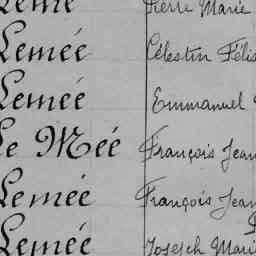 Lemé Pierre Marie
Lemée Célestin Félis
Lemée Emmanuel
Le Mée François Jean
Lemée François Jean
Lemée Joseph Marie